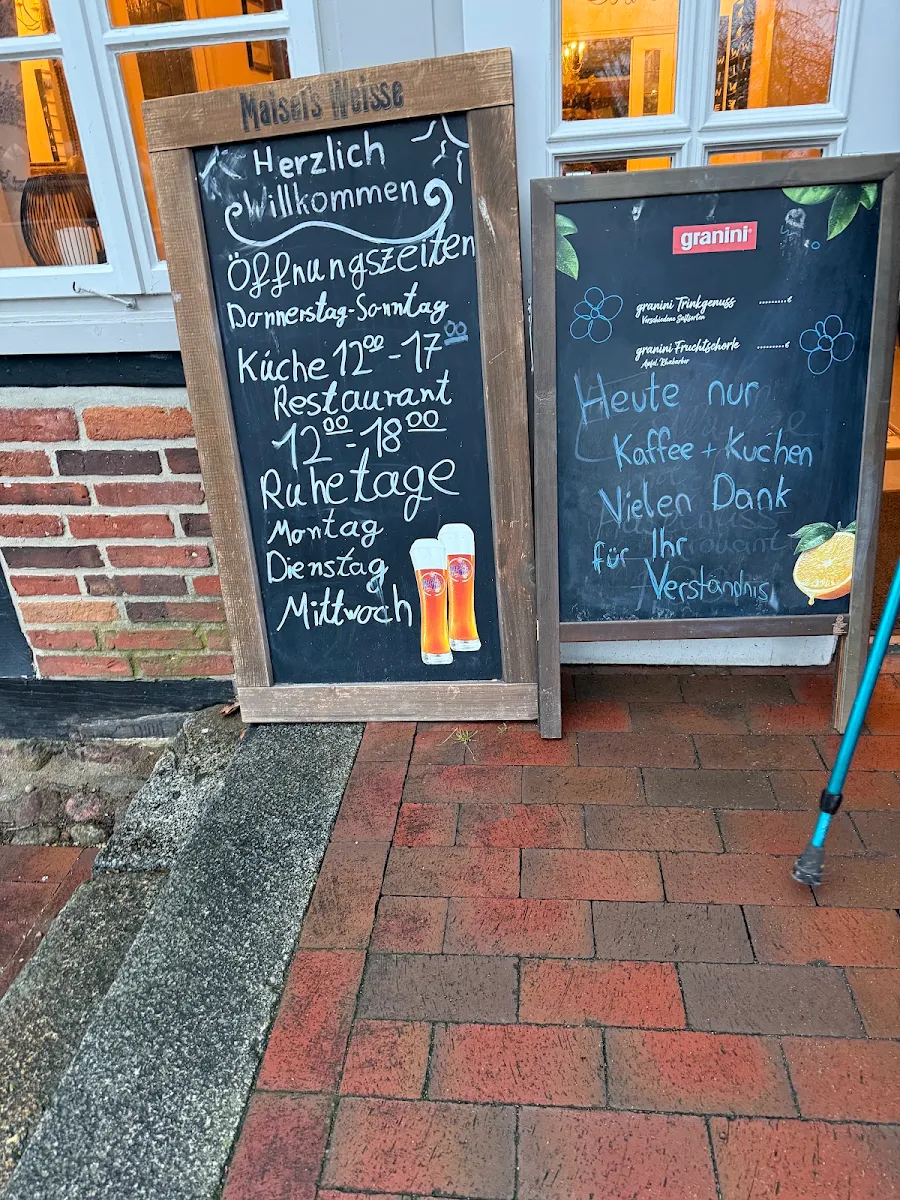 Maisel's Weisse
Herzlich
Willkommen
Öffnungszeiten
Donnerstag-Sonntag
Küche 12⁰⁰-17⁰⁰
Restaurant
12⁰⁰-18⁰⁰
Ruhetage
Montag
Dienstag
Mittwoch
granini
granini Trinkgenuss ........€
Verschiedene Saftsorten
granini Fruchtschorle ........€
Apfel, Rhabarber
Heute nur
Kaffee + Kuchen
Vielen Dank
für Ihr
Verständnis